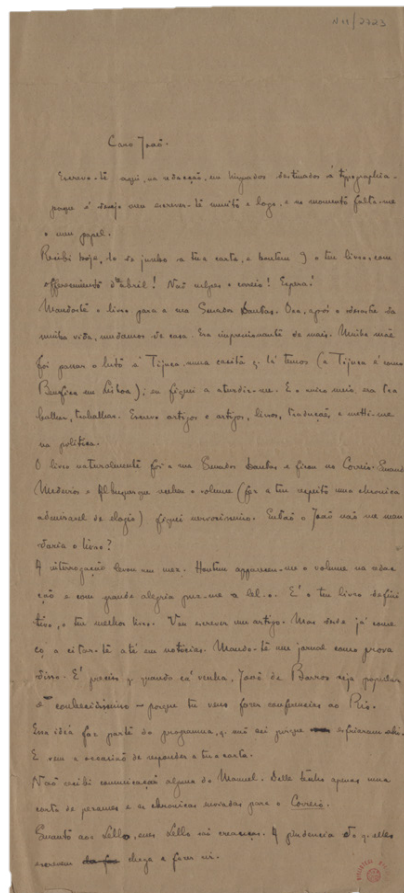 N11/2723
Caro João.
Escrevo-te aqui, na redacção, em linguados destinados á typographia.
porque é desejo meu escrever-te muito e logo, e no momento falta-me
o meu papel.
Recebi hoje, 10 de junho a tua carta, e hontem 9 o teu livro, com
offerecimento d'abril! Não culpes o correio! Espera!
Mandaste o livro para a rua Senador Dantas. Ora, após o desastre da
minha vida, mudamos de casa. Era impressionante de mais. Minha mãe
foi passar o luto á Tijuca numa casita q. lá temos (a Tijuca é uma
Bemfica em Lisboa); eu fiquei a atordoar-me. E o unico meio era tra
balhar, trabalhar. Escrevo artigos e artigos, livros, e metti-me
na politica.
O livro naturalmente foi a rua Senador Dantas e ficou no Correio. Quando
Medeiros e Albuquerque recebeu o volume (fez a teu respeito uma chronica
admiravel de elogio) fiquei nervosissimo. Então o João não me man
daria o livro?
A interrogação levou um mez. Hontem appareceu-me o volume na redac
ção e com grande alegria puz-me a lel-o. É o teu livro defini
tivo, o teu melhor livro. Vou escrever um artigo. Mas desde já come
ço a citar-te até em noticias. Mando-te um jornal como prova
disso. É preciso q quando cá venhas, João de Barros seja popular
e conhecidissimo — porque tu vens fazer conferencias ao Rio.
Essa idéa faz parte do programma, q.
E vem a occasião de responder a tua carta.
Não recebi communicação alguma do Manuel. Delle tenho apenas uma
carta de pezames e as chronicas enviadas para o Correio.
Quanto aos Lello, esses Lello
escrevem chega a fazer rir.